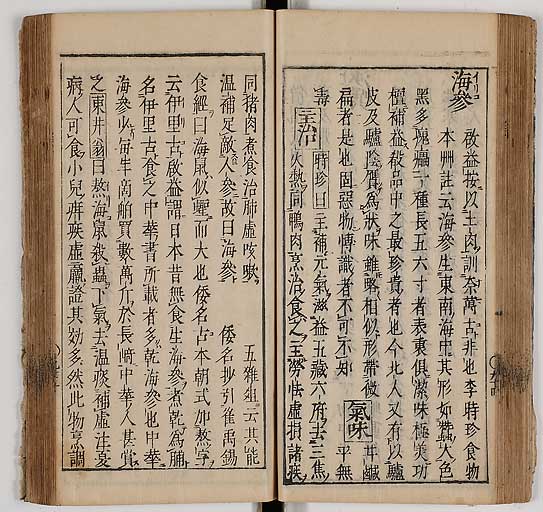 海參
啟益按以土肉訓奈萬古非也李時珍食物
本艸註云海參生東南海中其形如蠶大色
黑多瘣癗一種長五六寸者表裏俱潔味極美功
檀補益殽品中之最珍貴者也今北人又有以驢
皮及驢陰莖爲狀味雖略相似形帶微
扁者是也固惡物博識者不可不知 氣味 甘鹹 平無
毒
主治 時珍曰主補元氣滋益五藏六府去三焦
火熱同鴨肉烹治食之主勞怯虛損諸疾
同豬肉煮食治肺虛咳嗽 五雜組云其能
溫補足敵人參故曰海參 倭名抄引崔禹錫
食經曰海鼠似蛭而大也倭名古本朝式加熬字
云伊里古啟益謂日本昔無食生海參者乾爲脯
名伊里古食之中華書所載者多乾海參也中華
海參少每年商舶買數萬斤於長崎中華人甚賞
之 東井翁曰熬海鼠殺蟲下氣去溫痰補虛注夏
病人可食小兒疳疾虛羸證其効多然此物烹調